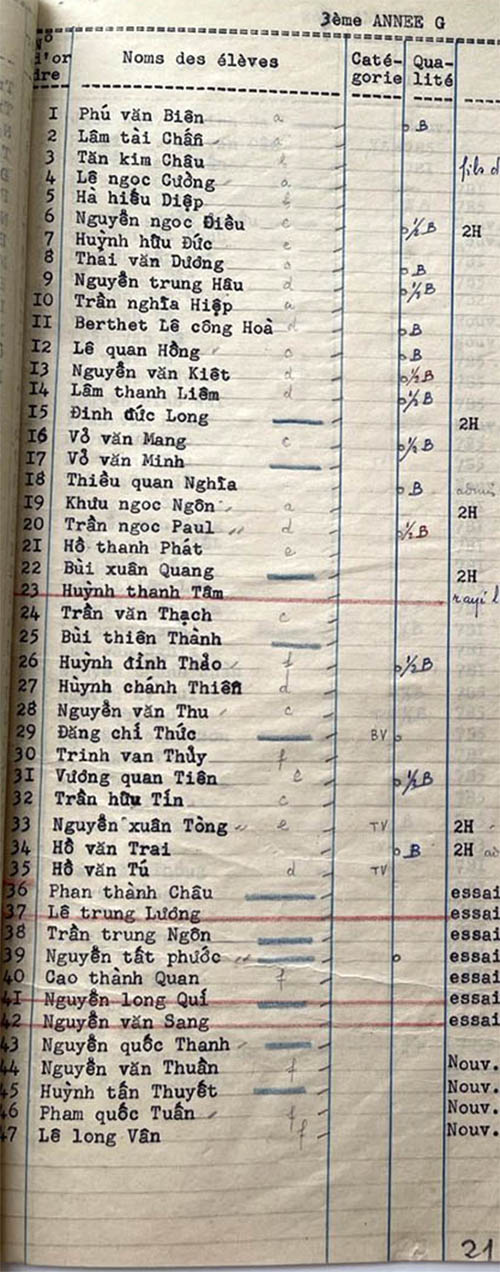 3ème ANNEE G
N° d'or dre Noms des élèves Caté- gorie Qua- lité
1 Phú văn Biên a o B
2 Lâm tài Chấn a
3 Tăn kim Châu fils d
4 Lê ngọc Cường a
5 Hà hiếu Diệp
6 Nguyễn ngọc Điều c o ½ B 2H
7 Huỳnh hữu Đức e
8 Thái văn Dương o B
9 Nguyễn trung Hâu d o ½ B
10 Trần nghĩa Hiệp a
11 Berthet Lê công Hoà d o B
12 Lê quan Hồng c o B
13 Nguyễn văn Kiêt d o ½ B
14 Lâm thanh Liêm d o ½ B
15 Đinh đức Long 2H
16 Võ văn Mang c o ½ B
17 Võ văn Minh
18 Thiều quan Nghĩa o B
19 Khưu ngọc Ngôn a 2H
20 Trần ngọc Paul d o ½ B
21 Hồ thanh Phát e
22 Bùi xuân Quang 2H
23 Huỳnh thanh Tâm
24 Trần văn Thạch c
25 Bùi thiên Thành
26 Huỳnh đỉnh Thảo f o ½ B
27 Hùynh chánh Thiên d
28 Nguyễn văn Thu c
29 Đăng chí Thức BV o
30 Trinh van Thủy f
31 Vương quan Tiên e o ½ B
32 Trần hữu Tín c
33 Nguyễn xuân Tòng e TV 2H
34 Hồ văn Trai o B 2H
35 Hồ văn Tú d TV
36 Phan thành Châu essai
37 Lê trung Lương essai
38 Trần trung Ngôn essai
39 Nguyễn tất phước o essai
40 Cao thành Quan f essai
41 Nguyễn long Quí essai
42 Nguyễn văn Sang essai
43 Nguyễn quốc Thanh
44 Nguyễn văn Thuần f Nouv.
45 Huỳnh tấn Thuyết Nouv.
46 Pham quốc Tuấn f Nouv.
47 Lê long Vân f Nouv.
21